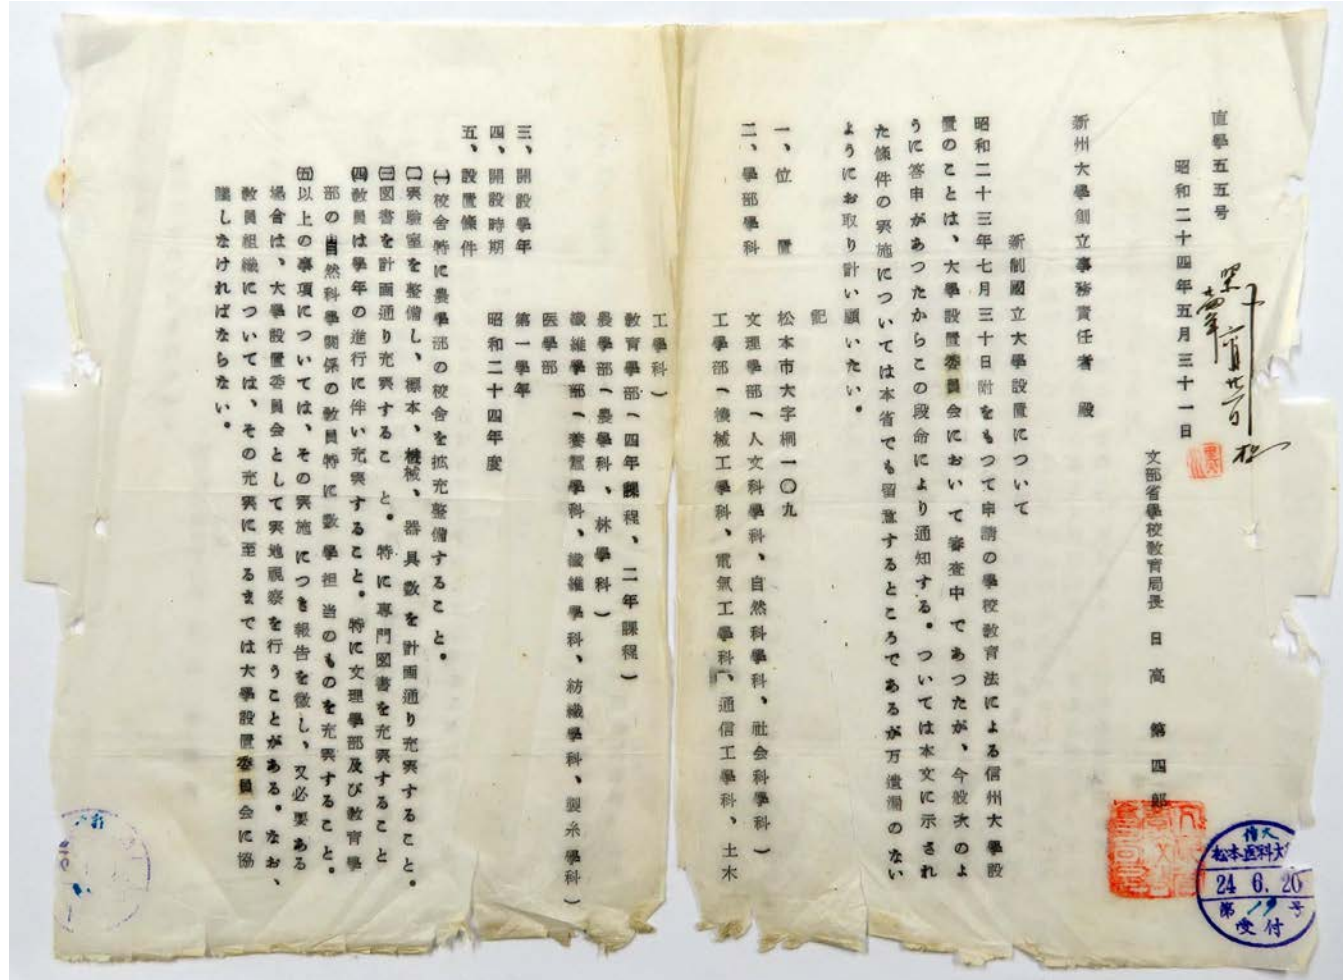 直學五五号
昭和二十四年五月三十一日
文部省學校教育局長 日高 第四郎
新州大學創立事務責任者 殿
新制國立大學設置について
昭和二十三年七月三十日附をもつて申請の學校教育法による信州大學設
置のことは、大學設置委員会において審査中であつたが、今般次のよ
うに答申があつたからこの段命により通知する。ついては本文に示され
た條件の実施については本省でも留意するところであるが万遺漏のない
ようにお取り計い願いたい。
記
一、位 置 松本市大字桐一〇九
二、學部學科 文理學部(人文科學科、自然科學科、社会科學科)
工學部(機械工學科、電氣工學科、通信工學科、土木
工學科)
教育學部(四年課程、二年課程)
農學部(農學科、林學科)
纖維學部(養蚕學科、纖維學科、紡織學科、製糸學科)
医學部
三、開設學年 第一學年
四、開設時期 昭和二十四年度
五、設置條件
(一)校舎特に農學部の校舎を拡充整備すること。
(二)実驗室を整備し、標本、機械、器具数を計画通り充実すること。
(三)図書を計画通り充実すること。特に専門図書を充実すること
(四)教員は學年の進行に伴い充実すること。特に文理學部及び教育學
部の自然科學関係の教員特に数學担当のものを充実すること。
(五)以上の事項については、その実施につき報告を徴し、又必要ある
場合は、大學設置委員会として実地視察を行うことがある。なお、
教員組織については、その充実に至るまでは大學設置委員会に協
議しなければならない。
信大
松本医科大
24 6. 20
第 19 号
受付